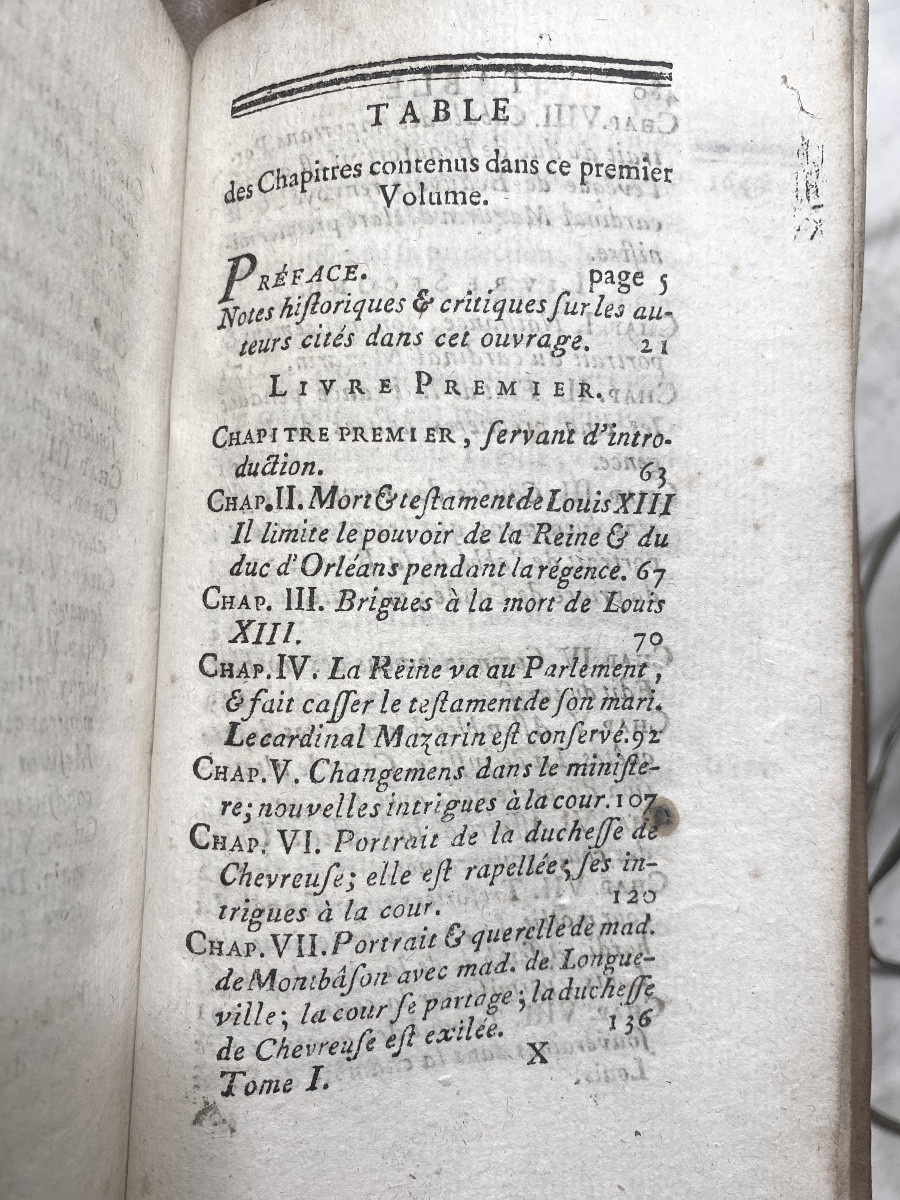 TABLE
des Chapitres contenus dans ce premier
Volume.
PRÉFACE. page 5
Notes hiſtoriques & critiques ſur les au-
teurs cités dans cet ouvrage. 21
LIVRE PREMIER.
CHAPITRE PREMIER, ſervant d'intro-
duction. 63
CHAP. II. Mort & teſtament de Louis XIII
Il limite le pouvoir de la Reine & du
duc d'Orléans pendant la régence. 67
CHAP. III. Brigues à la mort de Louis
XIII. 70
CHAP. IV. La Reine va au Parlement,
& fait caſſer le teſtament de ſon mari.
Le cardinal Mazarin eſt conſervé. 92
CHAP. V. Changemens dans le miniſte-
re; nouvelles intrigues à la cour. 107
CHAP. VI. Portrait de la ducheſſe de
Chevreuſe; elle eſt rapellée; ſes in-
trigues à la cour. 120
CHAP. VII. Portrait & querelle de mad.
de Montbâſon avec mad. de Longue-
ville; la cour ſe partage; la ducheſſe
de Chevreuſe eſt exilée. 136
Tome I. X